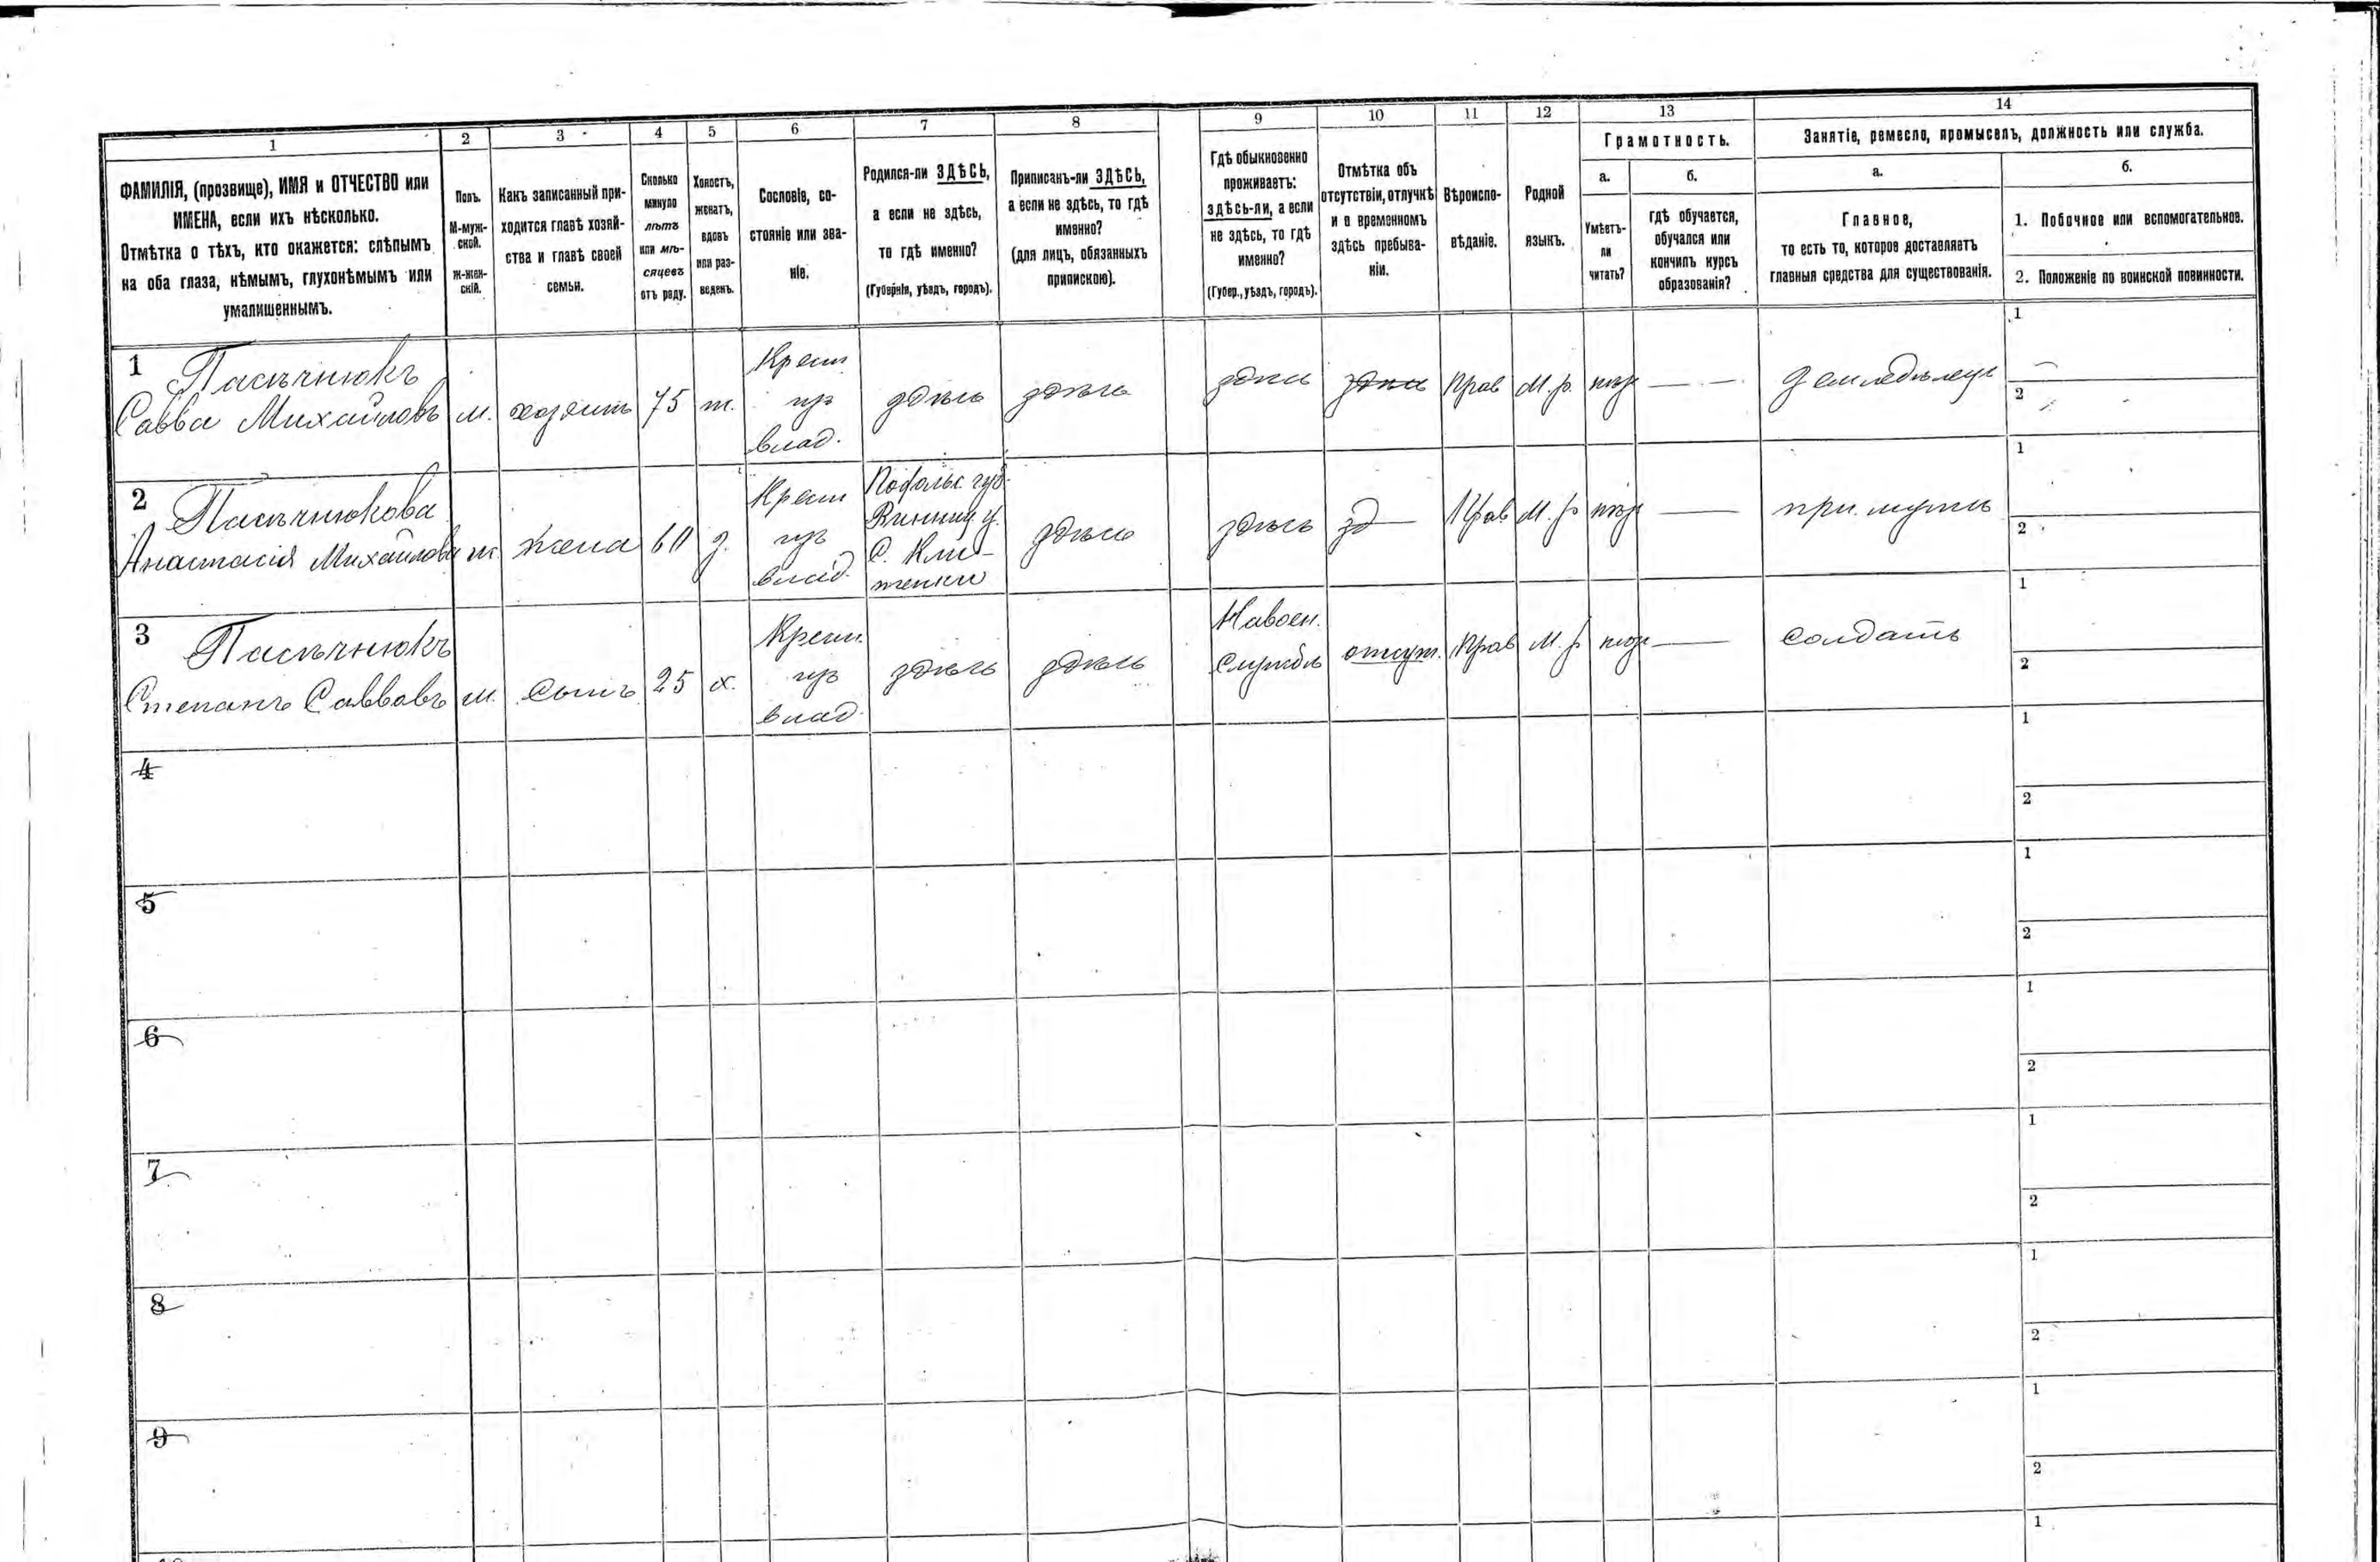 1 2 3 4 5 6 7 8 9 10 11 12 13 14
ФАМИЛІЯ, (прозвище), ИМЯ и ОТЧЕСТВО или
ИМЕНА, если ихъ нѣсколько.
Отмѣтка о тѣхъ, кто окажется: слѣпымъ
на оба глаза, нѣмымъ, глухонѣмымъ или
умалишеннымъ.
Полъ.
М-муж-
ской.
Ж-жен-
скій.
Какъ записанный при-
ходится главѣ хозяй-
ства и главѣ своей
семьи.
Сколько
минуло
лѣтъ
или мѣ-
сяцевъ
отъ роду.
Холостъ,
женатъ,
вдовъ
или раз-
веденъ.
Сословіе, со-
стояніе или зва-
ніе.
Родился-ли ЗДѢСЬ,
а если не здѣсь,
то гдѣ именно?
(Губернія, уѣздъ, городъ).
Приписанъ-ли ЗДѢСЬ,
а если не здѣсь, то гдѣ
именно?
(для лицъ, обязанныхъ
припискою).
Гдѣ обыкновенно
проживаетъ:
здѣсь-ли, а если
не здѣсь, то гдѣ
именно?
(Губер., уѣздъ, городъ).
Отмѣтка объ
отсутствіи, отлучкѣ
и о временномъ
здѣсь пребыва-
ніи.
Вѣроиспо-
вѣданіе.
Родной
языкъ.
Грамотность.
а.
Умѣетъ-
ли
читать?
б.
гдѣ обучается,
обучался или
кончилъ курсъ
образованія?
Занятіе, ремесло, промыселъ, должность или служба.
а.
Главное,
то есть то, которое доставляетъ
главныя средства для существованія.
б.
1. Побочное или вспомогательное.
2. Положеніе по воинской повинности.
1 Пасѣчнюкъ
Савва Михайловъ
м.
хозяинъ
75
ж.
Крест.
изъ
влад.
здѣсь
здѣсь
здѣсь
здѣсь
Прав
М. р.
нѣт
Земледѣлецъ
1
2
2 Пасѣчнюкова
Анастасія Михайлова
ж.
жена
60
з.
Крест
изъ
влад.
Подольс. губ.
Винниц. у.
С.
здѣсь
здѣсь
зд
Прав
М. р
нѣт
при мужѣ
1
2
3 Пасѣчнюкъ
Степанъ Саввовъ
м.
сынъ
25
х.
Крест.
изъ
влад.
здѣсь
здѣсь
На воен.
службѣ
отсут.
Прав
М. р
нѣт
солдатъ
1
2
4
1
2
5
1
2
6
1
2
7
1
2
8
1
2
9
1
2
1